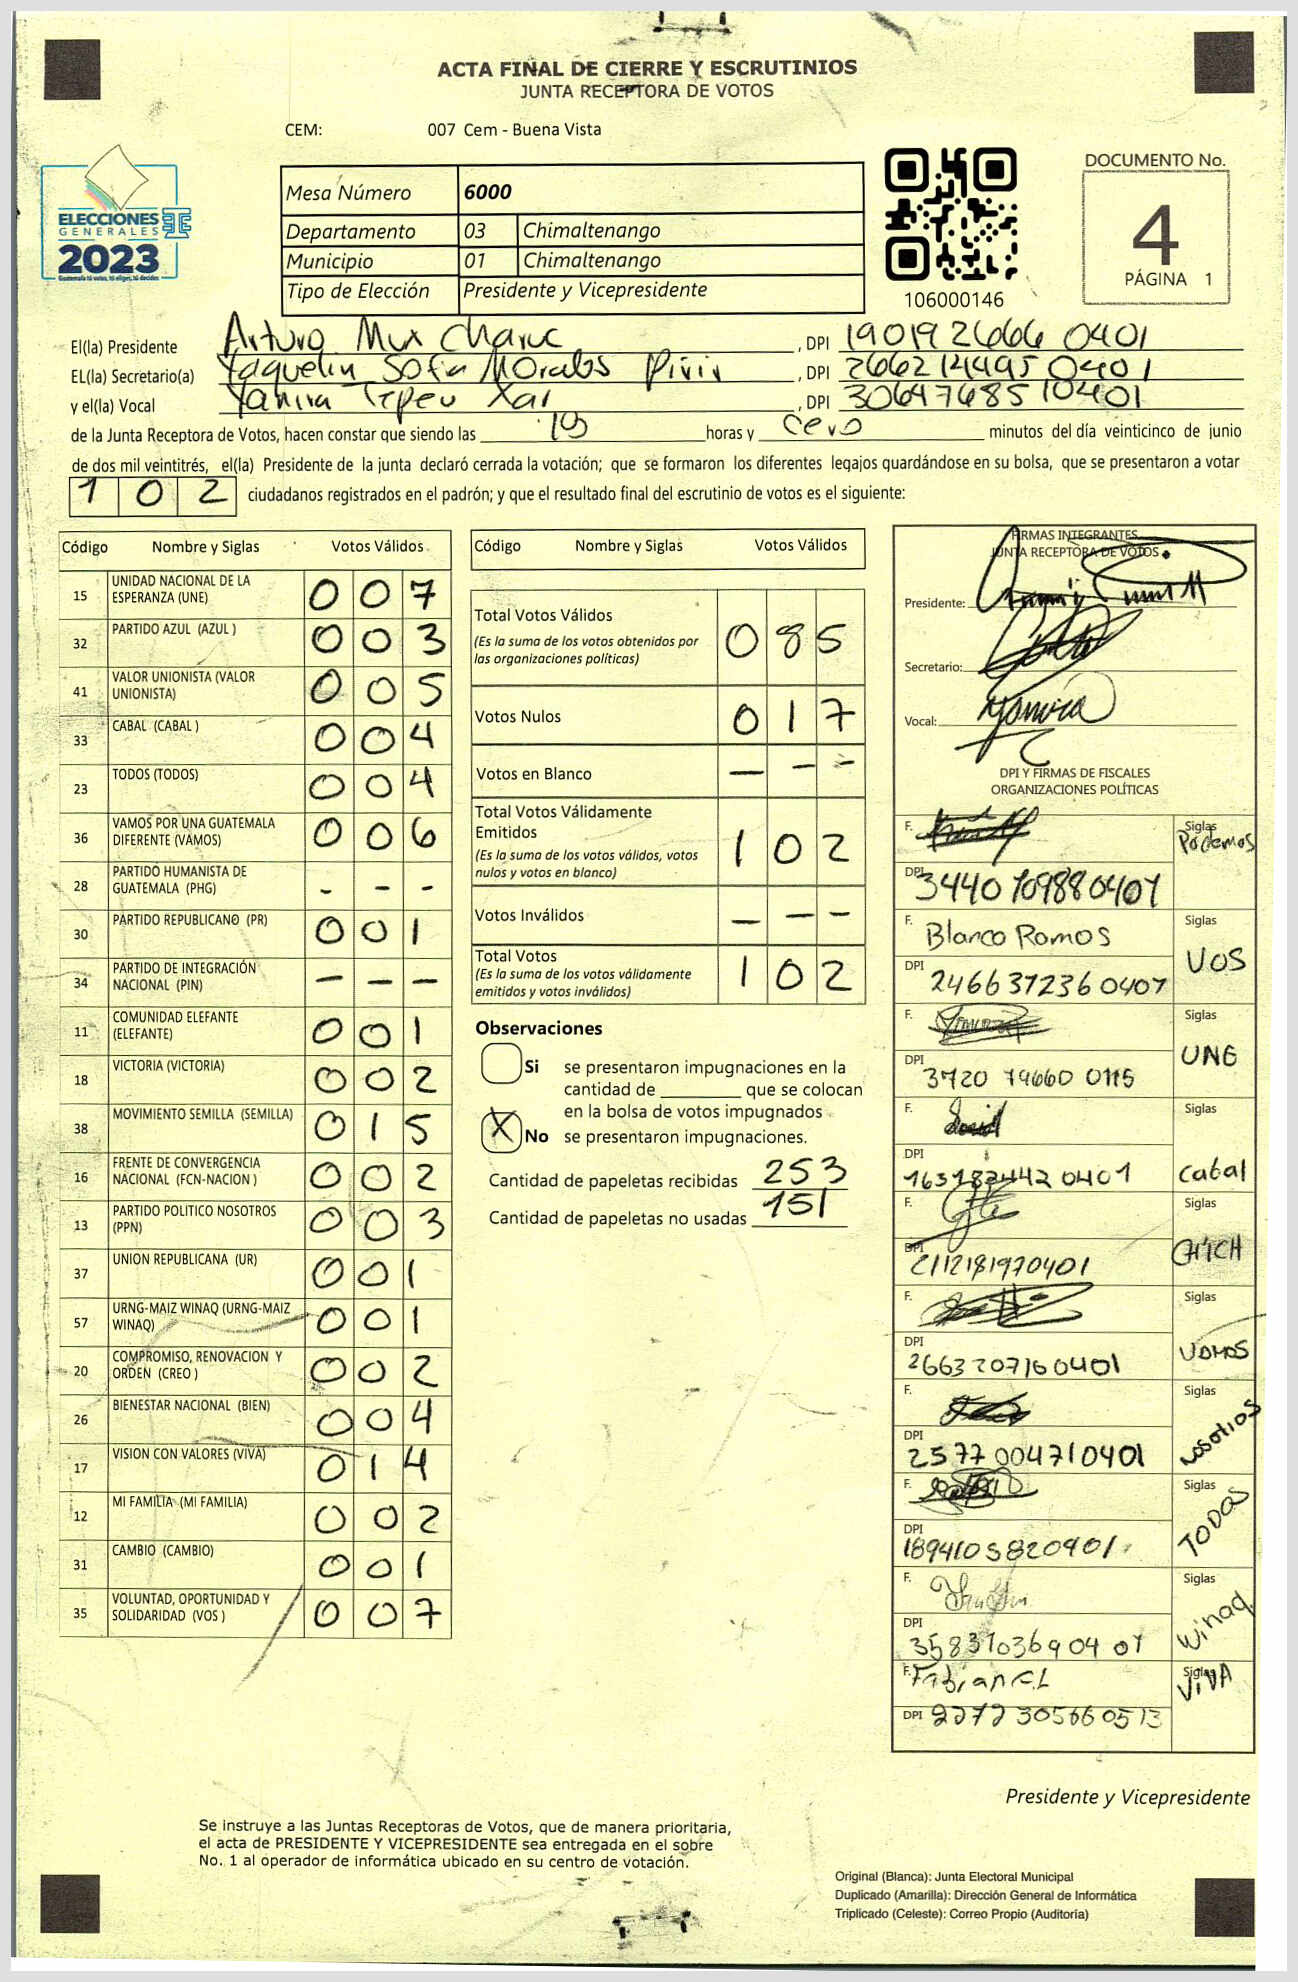 ACTA FINAL DE CIERRE Y ESCRUTINIOS
JUNTA RECEPTORA DE VOTOS
CEM: 007 Cem - Buena Vista
ELECCIONES
GENERALES
2023
Guatemala tú votas, tú eliges, tú decides
Mesa Número 6000
Departamento 03 Chimaltenango
Municipio 01 Chimaltenango
Tipo de Elección Presidente y Vicepresidente
106000146
DOCUMENTO No.
4
PÁGINA 1
El(la) Presidente Arturo Mux , DPI 190192666 0401
EL(la) Secretario(a) Yaquelin Sofia Morales Pirir , DPI 266214495 0401
y el(la) Vocal Yanira Tepeu Xar , DPI 3064768510401
de la Junta Receptora de Votos, hacen constar que siendo las 19 horas y cero minutos del día veinticinco de junio
de dos mil veintitrés, el(la) Presidente de la junta declaró cerrada la votación; que se formaron los diferentes legajos guardándose en su bolsa, que se presentaron a votar
102 ciudadanos registrados en el padrón; y que el resultado final del escrutinio de votos es el siguiente:
Código Nombre y Siglas Votos Válidos
15 UNIDAD NACIONAL DE LA ESPERANZA (UNE) 0 0 7
32 PARTIDO AZUL (AZUL ) 0 0 3
41 VALOR UNIONISTA (VALOR UNIONISTA) 0 0 5
33 CABAL (CABAL ) 0 0 4
23 TODOS (TODOS) 0 0 4
36 VAMOS POR UNA GUATEMALA DIFERENTE (VAMOS) 0 0 6
28 PARTIDO HUMANISTA DE GUATEMALA (PHG) - - -
30 PARTIDO REPUBLICANO (PR) 0 0 1
34 PARTIDO DE INTEGRACIÓN NACIONAL (PIN) - - -
11 COMUNIDAD ELEFANTE (ELEFANTE) 0 0 1
18 VICTORIA (VICTORIA) 0 0 2
38 MOVIMIENTO SEMILLA (SEMILLA) 0 1 5
16 FRENTE DE CONVERGENCIA NACIONAL (FCN-NACION ) 0 0 2
13 PARTIDO POLITICO NOSOTROS (PPN) 0 0 3
37 UNION REPUBLICANA (UR) 0 0 1
57 URNG-MAIZ WINAQ (URNG-MAIZ WINAQ) 0 0 1
20 COMPROMISO, RENOVACION Y ORDEN (CREO ) 0 0 2
26 BIENESTAR NACIONAL (BIEN) 0 0 4
17 VISION CON VALORES (VIVA) 0 1 4
12 MI FAMILIA (MI FAMILIA) 0 0 2
31 CAMBIO (CAMBIO) 0 0 1
35 VOLUNTAD, OPORTUNIDAD Y SOLIDARIDAD (VOS ) 0 0 7
Código Nombre y Siglas Votos Válidos
Total Votos Válidos 0 8 5
(Es la suma de los votos obtenidos por
las organizaciones políticas)
Votos Nulos 0 1 7
Votos en Blanco - - -
Total Votos Válidamente
Emitidos 1 0 2
(Es la suma de los votos válidos, votos
nulos y votos en blanco)
Votos Inválidos - - -
Total Votos 1 0 2
(Es la suma de los votos válidamente
emitidos y votos inválidos)
Observaciones
Si se presentaron impugnaciones en la
cantidad de ________ que se colocan
en la bolsa de votos impugnados
X No se presentaron impugnaciones.
Cantidad de papeletas recibidas 253
Cantidad de papeletas no usadas 151
FIRMAS INTEGRANTES
JUNTA RECEPTORA DE VOTOS
Presidente:
Secretario:
Vocal: Yanira
DPI Y FIRMAS DE FISCALES
ORGANIZACIONES POLÍTICAS
F. Siglas Podemos
DPI 3440709880401
F. Blanco Ramos Siglas VOS
DPI 2466372360407
F. Siglas UNE
DPI 3720 79660 0115
F. Siglas Cabal
DPI 163182442 0401
F. Siglas
DPI 2112181970401
F. Siglas VAMOS
DPI 2663207160401
F. Siglas Nosotros
DPI 2577004710401
F. Siglas TODOS
DPI 1894105820401
F. Siglas Winaq
DPI 358310369 04 01
F. Fabian C.L Siglas VIVA
DPI 2272 305660513
Presidente y Vicepresidente
Se instruye a las Juntas Receptoras de Votos, que de manera prioritaria,
el acta de PRESIDENTE Y VICEPRESIDENTE sea entregada en el sobre
No. 1 al operador de informática ubicado en su centro de votación.
Original (Blanca): Junta Electoral Municipal
Duplicado (Amarilla): Dirección General de Informática
Triplicado (Celeste): Correo Propio (Auditoría)